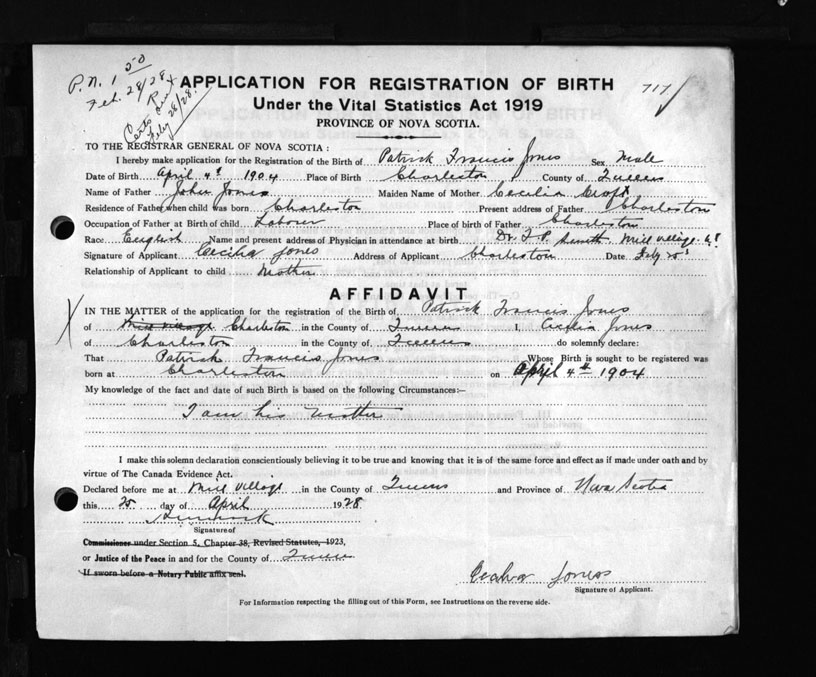 P.N. 1 50
Feb. 28/28
Feby 28/28.
717
APPLICATION FOR REGISTRATION OF BIRTH
Under the Vital Statistics Act 1919
PROVINCE OF NOVA SCOTIA.
TO THE REGISTRAR GENERAL OF NOVA SCOTIA:
I hereby make application for the Registration of the Birth of Patrick Francis Jones Sex Male
Date of Birth April 4th 1904 Place of Birth Charleston County of Queens
Name of Father John Jones Maiden Name of Mother Cecilia Croft
Residence of Father when child was born Charleston Present address of Father Charleston
Occupation of Father at Birth of child Labour Place of birth of Father Charleston
Race English Name and present address of Physician in attendance at birth Dr. Smith Mill Village
Signature of Applicant Cecilia Jones Address of Applicant Charleston Date Feby 25
Relationship of Applicant to child Mother
AFFIDAVIT
IN THE MATTER of the application for the registration of the Birth of Patrick Francis Jones
of Mill Village Charleston in the County of Queens I, Cecilia Jones
of Charleston in the County of Queens do solemnly declare:
That Patrick Francis Jones Whose Birth is sought to be registered was
born at Charleston on April 4th 1904
My knowledge of the fact and date of such Birth is based on the following Circumstances:—
I am his Mother
I make this solemn declaration conscientiously believing it to be true and knowing that it is of the same force and effect as if made under oath and by
virtue of The Canada Evidence Act.
Declared before me at Mill Village in the County of Queens and Province of Nova Scotia
this 25 day of April 1928
Signature of
Commissioner under Section 5, Chapter 38, Revised Statutes, 1923,
or Justice of the Peace in and for the County of Queens
If sworn before a Notary Public affix seal.
Cecilia Jones
Signature of Applicant.
For Information respecting the filling out of this Form, see Instructions on the reverse side.